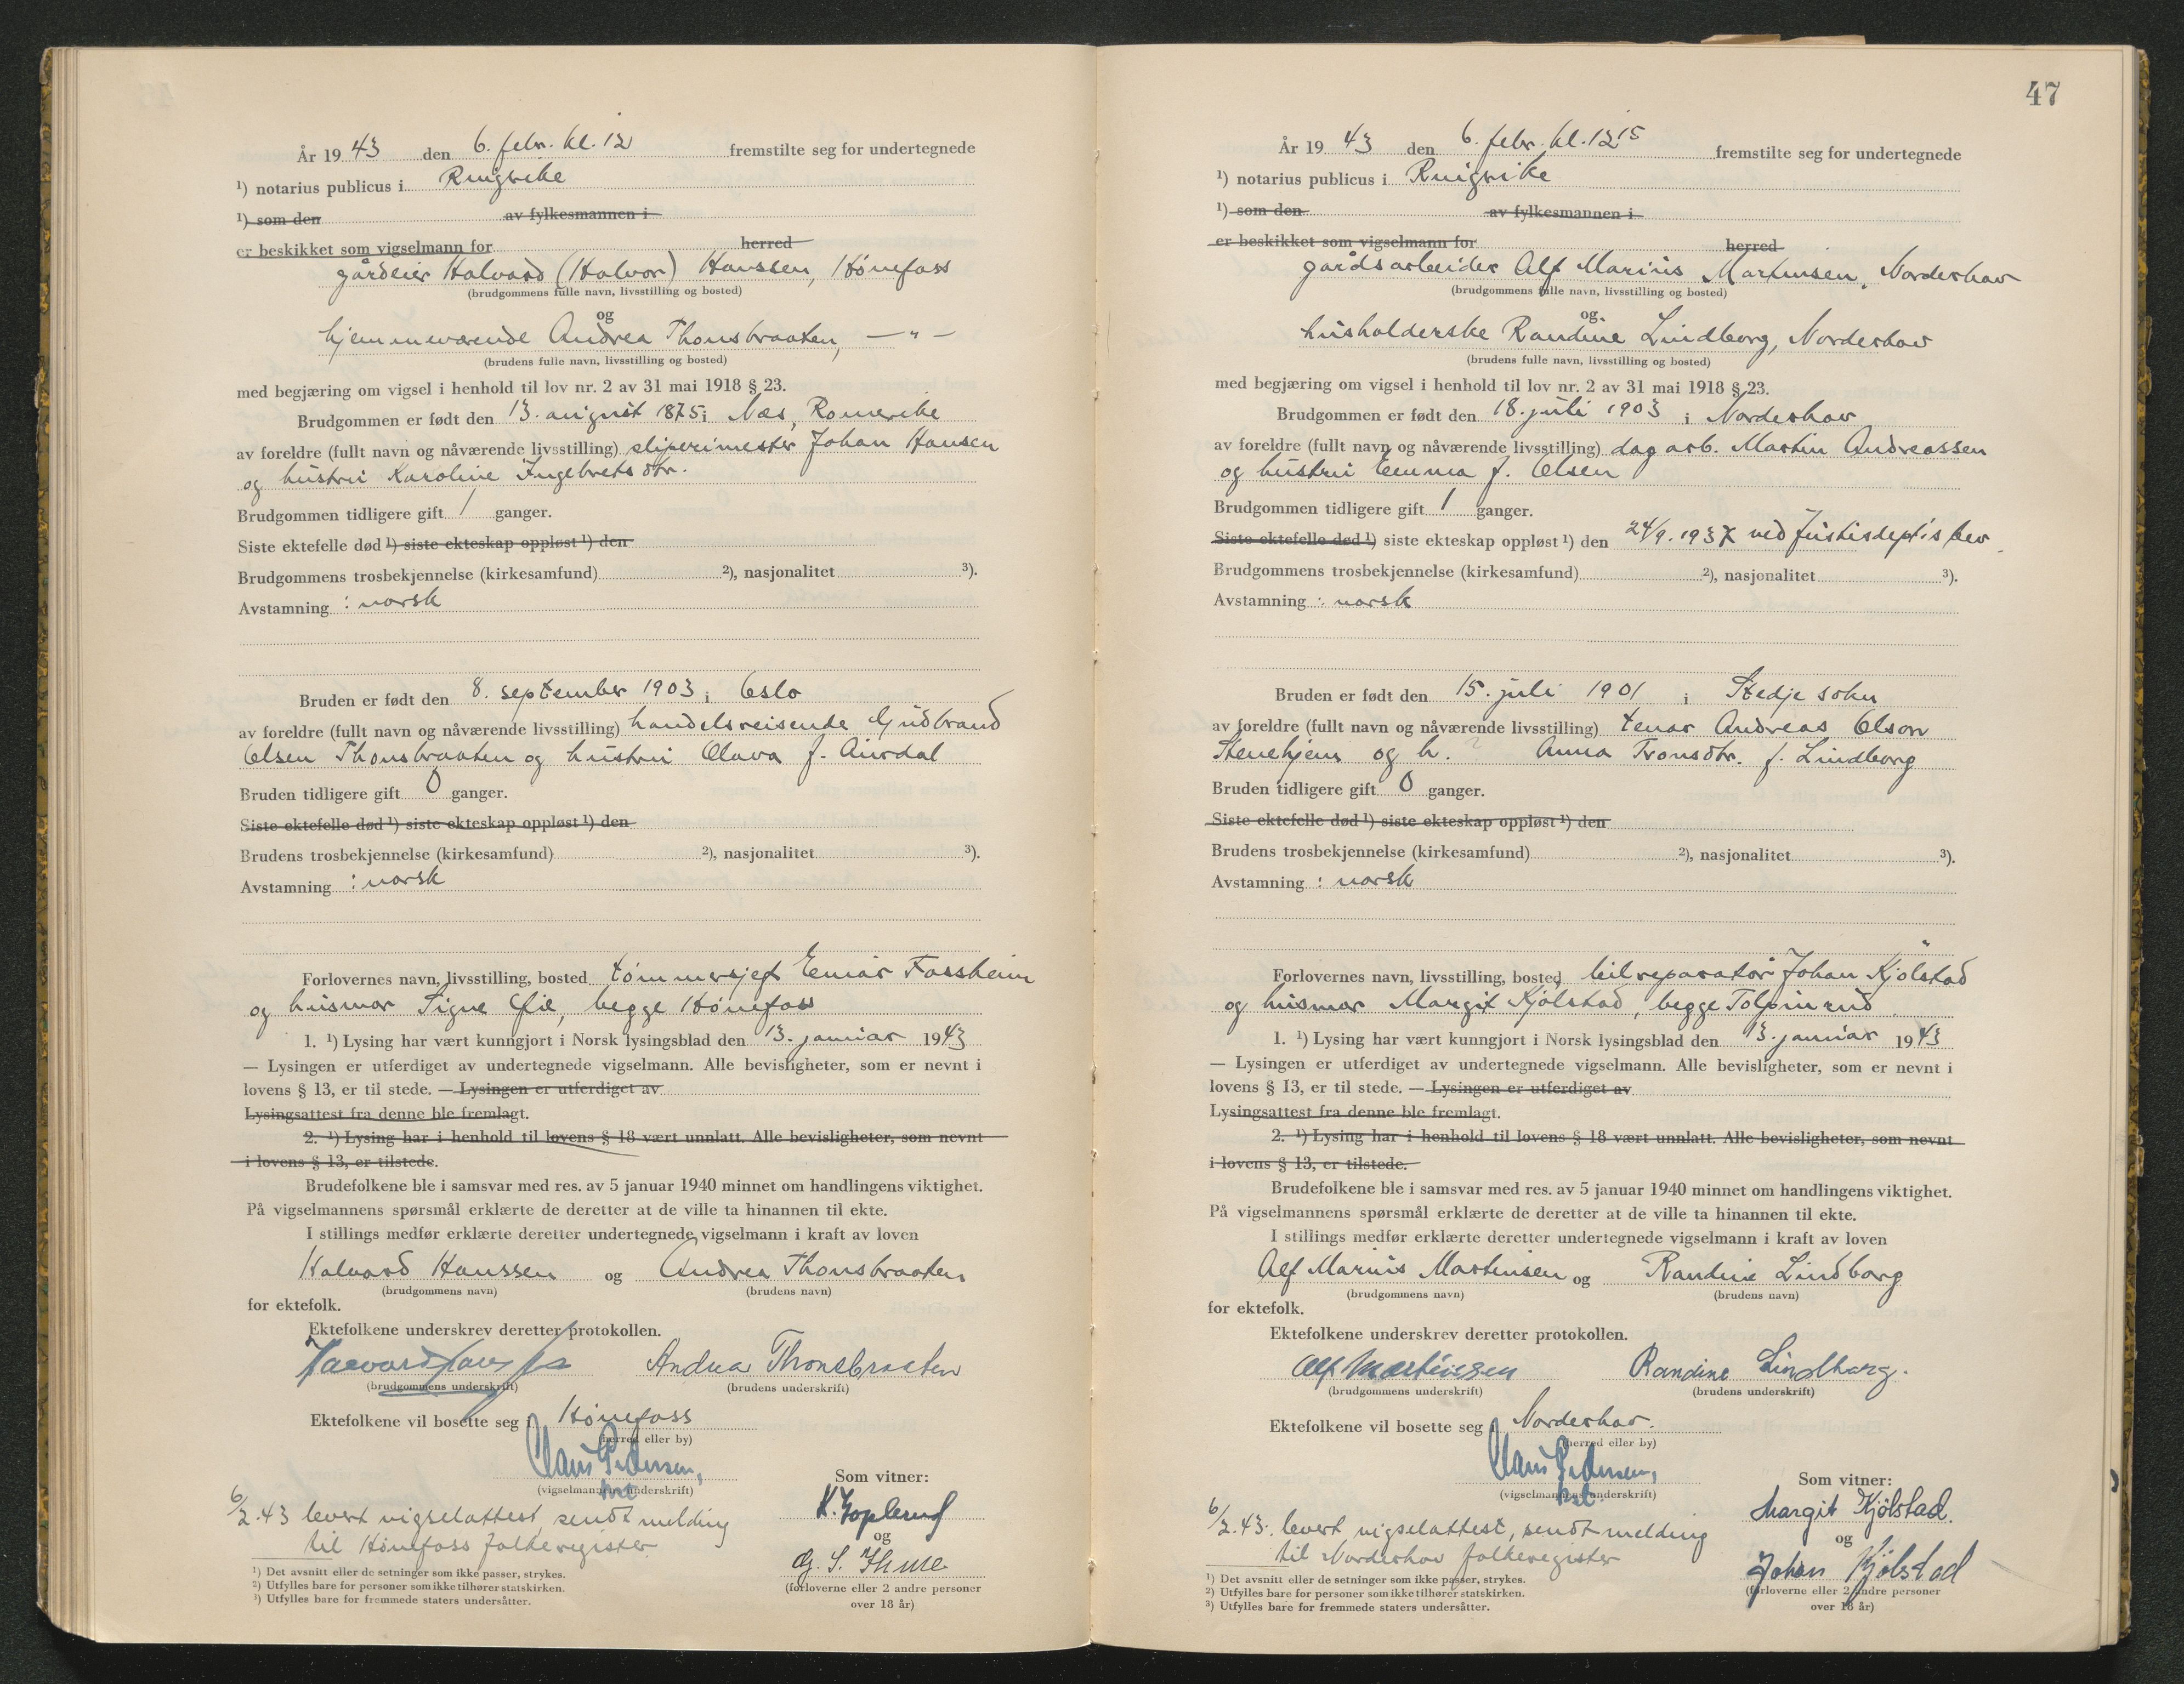 År 19 43 den 6. febr. kl. 12 fremstilte seg for undertegnede
¹) notarius publicus i Ringerike
¹) som den av fylkesmannen i
er beskikket som vigselmann for herred
gårdeier Halvard (Halvor) Hanssen, Hønefoss
(brudgommens fulle navn, livsstilling og bosted)
og
hjemmeværende Andrea Thonsbraaten, — " —
(brudens fulle navn, livsstilling og bosted)
med begjæring om vigsel i henhold til lov nr. 2 av 31 mai 1918 § 23.
Brudgommen er født den 13. august 1875 i Nes, Romerike
av foreldre (fullt navn og nåværende livsstilling) sliperimester Johan Hansen
og hustru Karoline Ingebretsdtr.
Brudgommen tidligere gift 1 ganger.
Siste ektefelle død ¹) siste ekteskap oppløst ¹) den
Brudgommens trosbekjennelse (kirkesamfund) ²), nasjonalitet ³).
Avstamning : norsk
Bruden er født den 8. september 1903 i Oslo
av foreldre (fullt navn og nåværende livsstilling) handelsreisende Gudbrand
Olsen Thonsbraaten og hustru Olava f. Aurdal
Bruden tidligere gift 0 ganger.
Siste ektefelle død ¹) siste ekteskap oppløst ¹) den
Brudens trosbekjennelse (kirkesamfund) ²), nasjonalitet ³).
Avstamning : norsk
Forlovernes navn, livsstilling, bosted tømmersjef Einar Fossheim
og husmor Signe Lie, begge Hønefoss
1. ¹) Lysing har vært kunngjort i Norsk lysingsblad den 13. januar 1943
— Lysingen er utferdiget av undertegnede vigselmann. Alle bevisligheter, som er nevnt i
lovens § 13, er til stede. — Lysingen er utferdiget av
Lysingsattest fra denne ble fremlagt.
2. ¹) Lysing har i henhold til lovens § 18 vært unnlatt. Alle bevisligheter, som nevnt
i lovens § 13, er tilstede.
Brudefolkene ble i samsvar med res. av 5 januar 1940 minnet om handlingens viktighet.
På vigselmannens spørsmål erklærte de deretter at de ville ta hinannen til ekte.
I stillings medfør erklærte deretter undertegnede vigselmann i kraft av loven
Halvard Hanssen og Andrea Thonsbraaten
(brudgommens navn) (brudens navn)
for ektefolk.
Ektefolkene underskrev deretter protokollen.
Andrea Thonsbraaten
(brudgommens underskrift) (brudens underskrift)
Ektefolkene vil bosette seg i Hønefoss
(herred eller by)
Claus Pedersen,
(vigselmannens underskrift)
Som vitner:
K. Hoplerud
og
(forloverne eller 2 andre personer
over 18 år)
6/2.43 levert vigselattest, sendt melding
til Hønefoss folkeregister
¹) Det avsnitt eller de setninger som ikke passer, strykes.
²) Utfylles bare for personer som ikke tilhører statskirken.
³) Utfylles bare for fremmede staters undersåtter.
47
År 19 43 den 6. febr. kl. 12¹⁵ fremstilte seg for undertegnede
¹) notarius publicus i Ringerike
¹) som den av fylkesmannen i
er beskikket som vigselmann for herred
gårdsarbeider Alf Marius Martinsen, Norderhov
(brudgommens fulle navn, livsstilling og bosted)
og
husholderske Randine Lindborg, Norderhov
(brudens fulle navn, livsstilling og bosted)
med begjæring om vigsel i henhold til lov nr. 2 av 31 mai 1918 § 23.
Brudgommen er født den 18. juli 1903 i Norderhov
av foreldre (fullt navn og nåværende livsstilling) dag arb. Martin Andreassen
og hustru Emma f. Olsen
Brudgommen tidligere gift 1 ganger.
Siste ektefelle død ¹) siste ekteskap oppløst ¹) den 24/9. 1937 ved Justisdept's bev.
Brudgommens trosbekjennelse (kirkesamfund) ²), nasjonalitet ³).
Avstamning : norsk
Bruden er født den 15. juli 1901 i Stedje sokn
av foreldre (fullt navn og nåværende livsstilling) tenar Andreas Olson
Stenehjem og h. ? Anna Tronsdtr. f. Lindborg
Bruden tidligere gift 0 ganger.
Siste ektefelle død ¹) siste ekteskap oppløst ¹) den
Brudens trosbekjennelse (kirkesamfund) ²), nasjonalitet ³).
Avstamning : norsk
Forlovernes navn, livsstilling, bosted bilreparatør Johan Kjölstad
og husmor Margit Kjölstad, begge Tolpinrud
1. ¹) Lysing har vært kunngjort i Norsk lysingsblad den 13. januar 1943
— Lysingen er utferdiget av undertegnede vigselmann. Alle bevisligheter, som er nevnt i
lovens § 13, er til stede. — Lysingen er utferdiget av
Lysingsattest fra denne ble fremlagt.
2. ¹) Lysing har i henhold til lovens § 18 vært unnlatt. Alle bevisligheter, som nevnt
i lovens § 13, er tilstede.
Brudefolkene ble i samsvar med res. av 5 januar 1940 minnet om handlingens viktighet.
På vigselmannens spørsmål erklærte de deretter at de ville ta hinannen til ekte.
I stillings medfør erklærte deretter undertegnede vigselmann i kraft av loven
Alf Marius Martinsen og Randine Lindborg
(brudgommens navn) (brudens navn)
for ektefolk.
Ektefolkene underskrev deretter protokollen.
Alf Martinsen Randine Lindborg.
(brudgommens underskrift) (brudens underskrift)
Ektefolkene vil bosette seg i Norderhov.
(herred eller by)
Claus Pedersen,
(vigselmannens underskrift)
Som vitner:
Margit Kjölstad.
og
Johan Kjölstad
(forloverne eller 2 andre personer
over 18 år)
6/2.43. levert vigselattest, sendt melding
til Norderhov folkeregister
¹) Det avsnitt eller de setninger som ikke passer, strykes.
²) Utfylles bare for personer som ikke tilhører statskirken.
³) Utfylles bare for fremmede staters undersåtter.